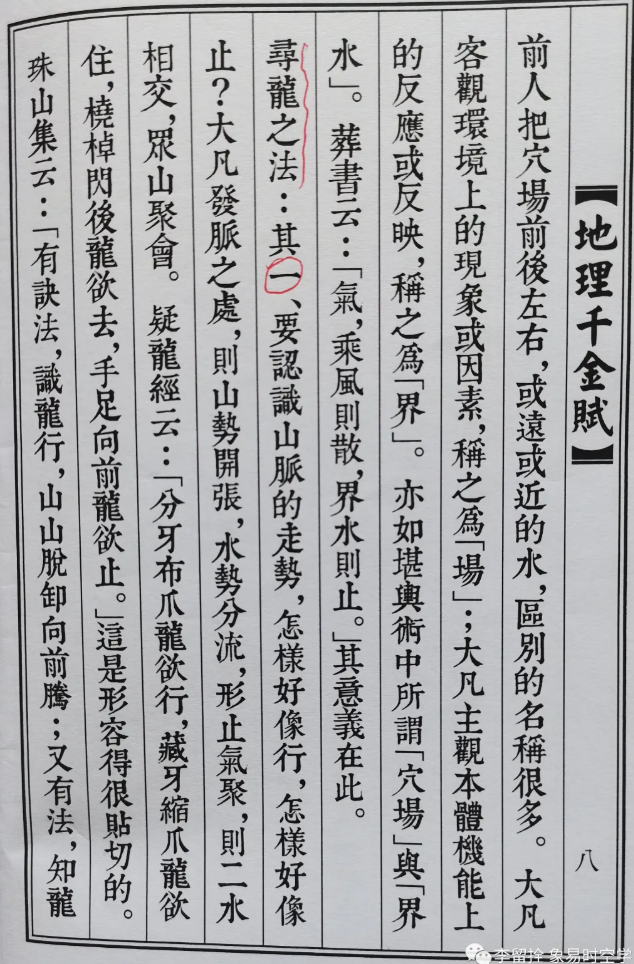 【地理千金賦】
八
前人把穴場前後左右，或遠或近的水，區別的名稱很多。大凡
客觀環境上的現象或因素，稱之爲「場」；大凡主觀本體機能上
的反應或反映，稱之爲「界」。亦如堪輿術中所謂「穴場」與「界
水」。葬書云：「氣，乘風則散，界水則止。」其意義在此。
尋龍之法：其一、要認識山脈的走勢，怎樣好像行，怎樣好像
止？大凡發脈之處，則山勢開張，水勢分流，形止氣聚，則二水
相交，眾山聚會。疑龍經云：「分牙布爪龍欲行，藏牙縮爪龍欲
住，橈棹閃後龍欲去，手足向前龍欲止。」這是形容得很貼切的。
珠山集云：「有訣法，識龍行，山山脫卸向前騰；又有法，知龍
李留拴 象易时空学